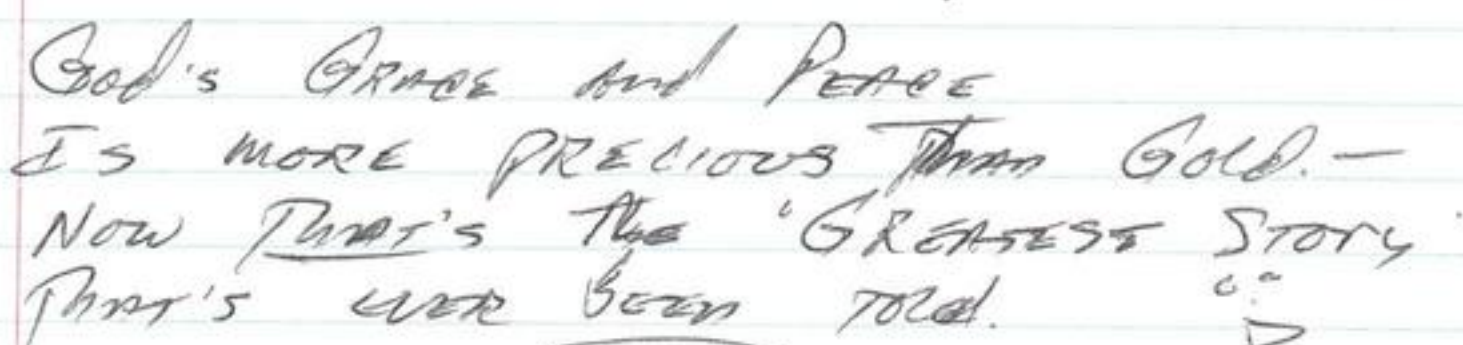 God's Grace and Peace
Is more precious Than Gold. —
Now That's the 'Greatest Story
That's ever been told.